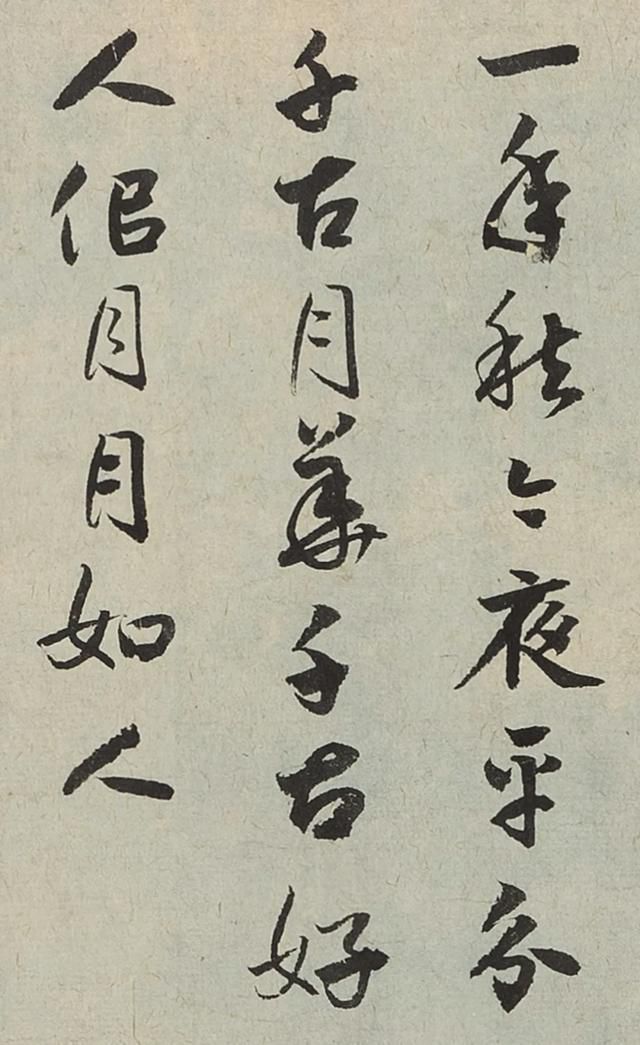 一年秋今夜平分
千古月華千古好
人侣月月如人